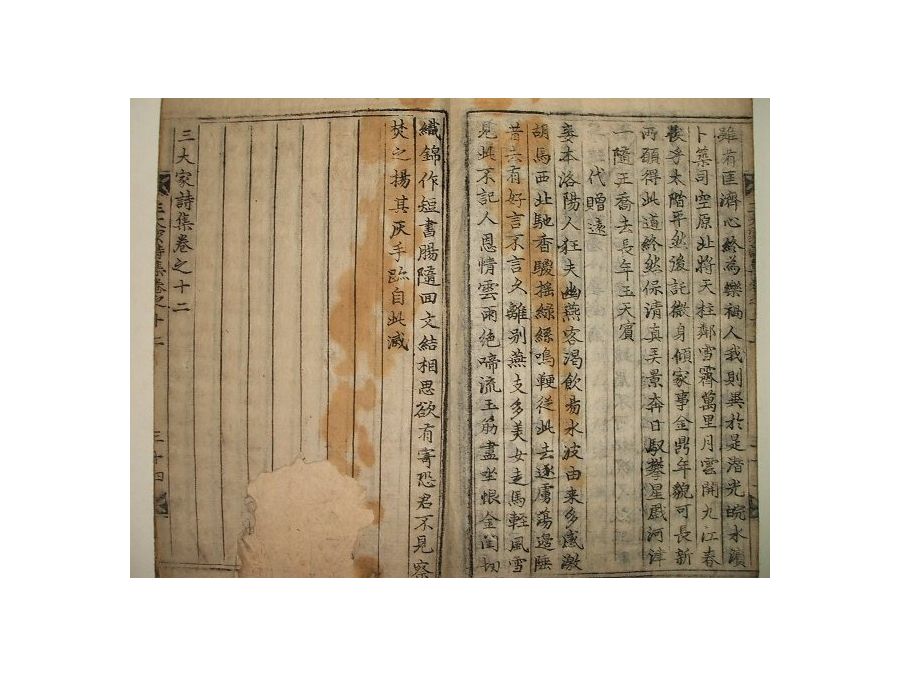 雖有匡濟心終為樂禍人我則異於是潛光皖水濱
卜築司空原北將天柱鄰雪霽萬里月雲開九江春
俟乎太階平然後託微身傾家事金鼎年貌可長新
所願得此道終然保清真弄景奔日馭攀星戲河津
一隨王喬去長年玉天賓
代贈遠
妾本洛陽人狂夫幽燕客渴飲易水波由來多感激
胡馬西北馳香鬉搖綠絲鳴鞭從此去逐虜蕩邊陲
昔去有好言不言久離別燕支多美女走馬輕風雪
見此不記人恩情雲雨絕啼流玉筯盡坐恨金閨切
織錦作短書腸隨回文結相思欲有寄恐君不見察
焚之揚其灰手跡自此滅
三大家詩集卷之十二
三大家詩集卷之十二
三十四